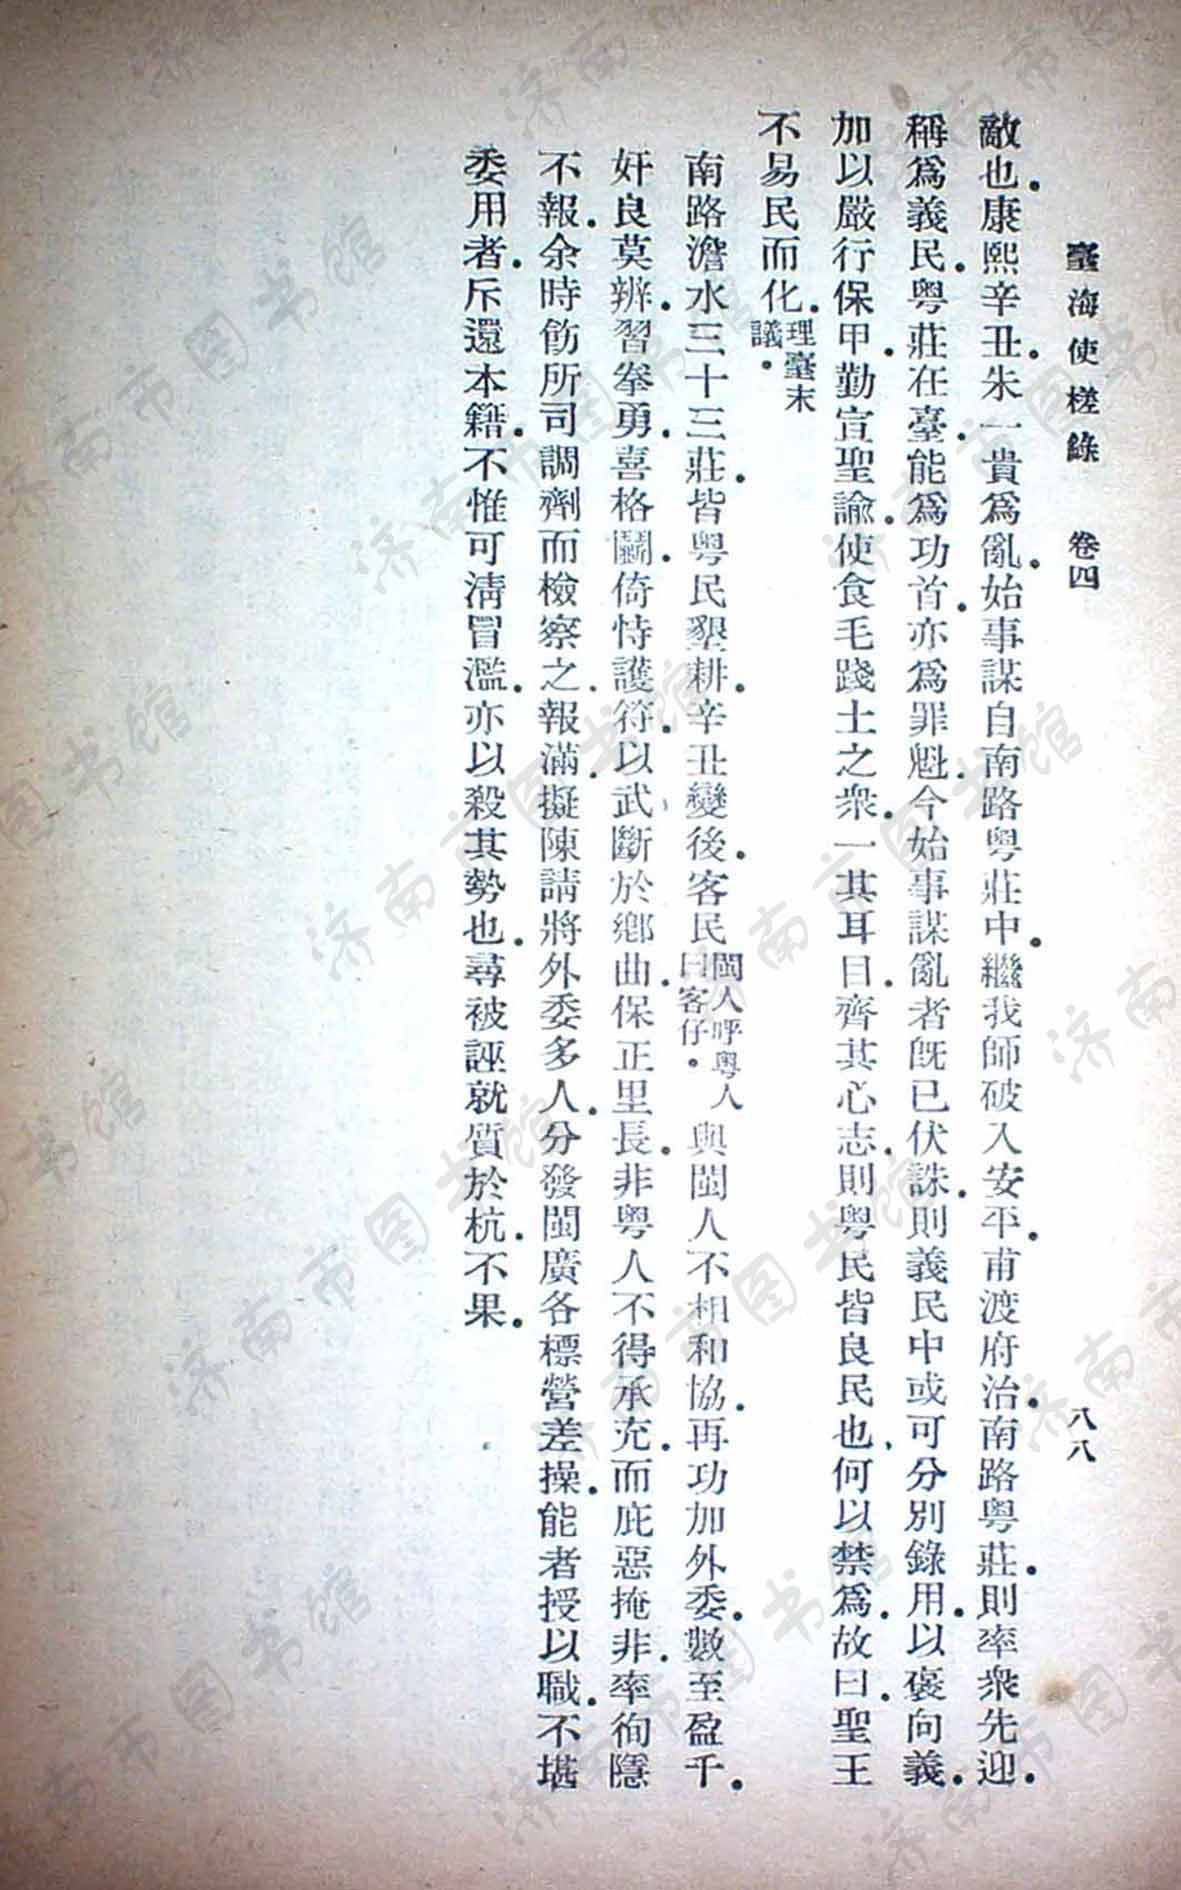 臺海使槎錄　卷四　八八
敵也．康熙辛丑．朱一貴爲亂．始事謀自南路粵莊中．繼我師破入安平．甫渡府治．南路粵莊．則率衆先迎．
稱爲義民．粵莊在臺．能爲功首．亦爲罪魁．今始事謀亂者既已伏誅．則義民中或可分別錄用．以褒向義．
加以嚴行保甲．勤宣聖諭．使食毛踐土之衆．一其耳目．齊其心志．則粵民皆良民也．何以禁爲．故曰．聖王
不易民而化．理臺末議．
南路澹水三十三莊．皆粵民墾耕．辛丑變後．客民閩人呼粵人曰客仔．與閩人不相和協．再功加外委．數至盈千．
奸良莫辨．習拳勇．喜格鬭．倚恃護符．以武斷於鄉曲．保正里長．非粵人不得承充．而庇惡掩非．率徇隱
不報．余時飭所司調劑而檢察之．報滿．擬陳請將外委多人．分發閩廣各標營差操．能者授以職．不堪
委用者．斥還本籍．不惟可淸冒濫．亦以殺其勢也．尋被誣就質於杭．不果．
济南市图书馆